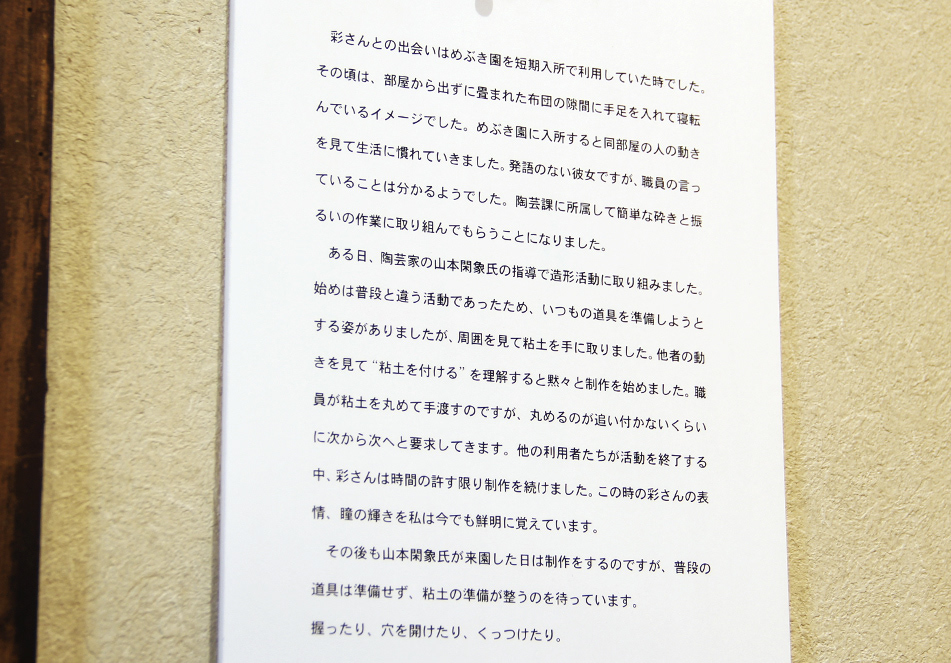 彩さんとの出会いはめぶき園を短期入所で利用していた時でした。
その頃は、部屋から出ずに畳まれた布団の隙間に手足を入れて寝転
んでいるイメージでした。めぶき園に入所すると同部屋の人の動き
を見て生活に慣れていきました。発語のない彼女ですが、職員の言っ
ていることは分かるようでした。陶芸課に所属して簡単な砕きと振
るいの作業に取り組んでもらうことになりました。
ある日、陶芸家の山本閑象氏の指導で造形活動に取り組みました。
始めは普段と違う活動であったため、いつもの道具を準備しようと
する姿がありましたが、周囲を見て粘土を手に取りました。他者の動
きを見て“粘土を付ける”を理解すると黙々と制作を始めました。職
員が粘土を丸めて手渡すのですが、丸めるのが追い付かないくらい
に次から次へと要求してきます。他の利用者たちが活動を終了する
中、彩さんは時間の許す限り制作を続けました。この時の彩さんの表
情、瞳の輝きを私は今でも鮮明に覚えています。
その後も山本閑象氏が来園した日は制作をするのですが、普段の
道具は準備せず、粘土の準備が整うのを待っています。
握ったり、穴を開けたり、くっつけたり。